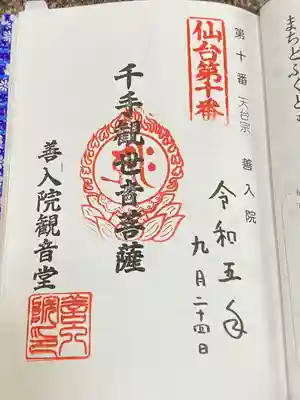 まちとふくと
第十番 天台宗 善入院
仙台第十番
令和五年
九月二十四日
千手観世音菩薩
善入院観音堂
善入院印